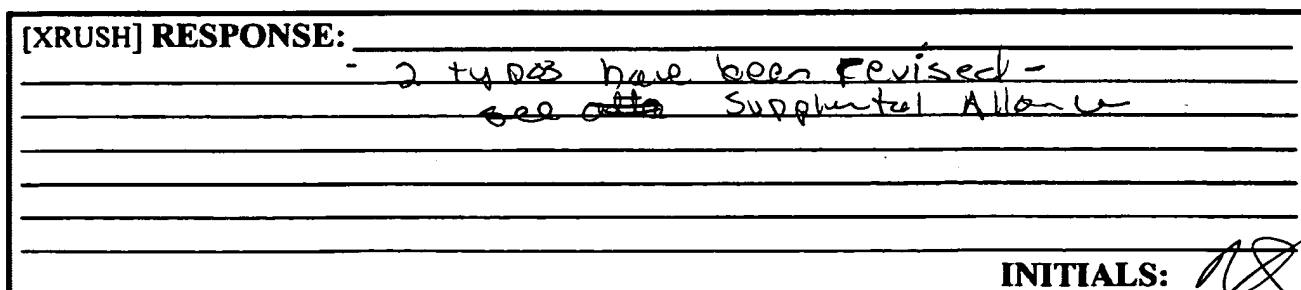 [XRUSH] RESPONSE:
- 2 typos have been revised -
see Supplemental Allowance
INITIALS: